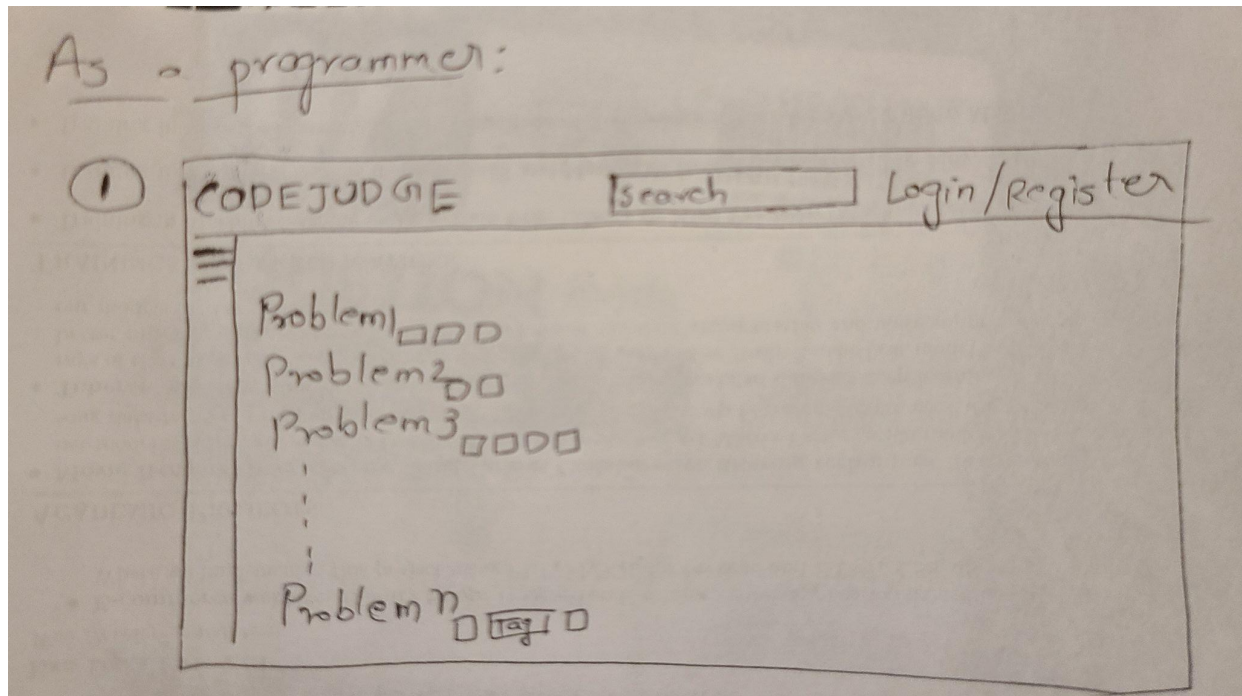 As a programmer:
1
CODEJUDGE search Login/Register
Problem1
Problem2
Problem3
Problem n Tag